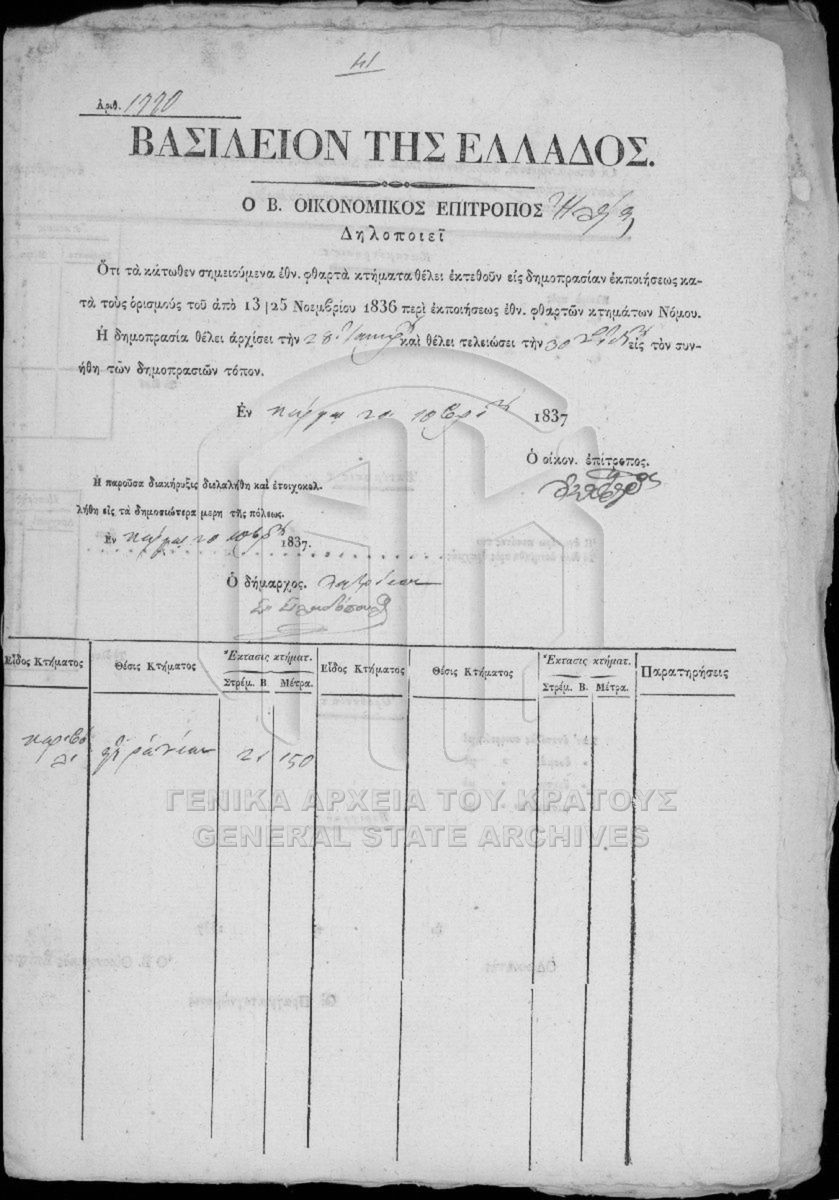 41
Ἀριθ. 1220
ΒΑΣΙΛΕΙΟΝ ΤΗΣ ΕΛΛΑΔΟΣ.
Ο Β. ΟΙΚΟΝΟΜΙΚΟΣ ΕΠΙΤΡΟΠΟΣ
Δηλοποιεῖ
Ὅτι τὰ κάτωθεν σημειούμενα ἐθν. φθαρτὰ κτήματα θέλει ἐκτεθοῦν εἰς δημοπρασίαν ἐκποιήσεως κα-
τὰ τοὺς ὁρισμοὺς τοῦ ἀπὸ 13|25 Νοεμβρίου 1836 περὶ ἐκποιήσεως ἐθν. φθαρτῶν κτημάτων Νόμου.
Ἡ δημοπρασία θέλει ἀρχίσει τὴν 28 καὶ θέλει τελειώσει τὴν 30 εἰς τὸν συν-
ήθη τῶν δημοπρασιῶν τόπον.
Ἐν 1837
Ὁ οἰκον. ἐπίτροπος.
Ἡ παροῦσα διακήρυξις διελαλήθη καὶ ἐτοιχοκολ-
λήθη εἰς τὰ δημοσιώτερα μερη τῆς πόλεως.
Ἐν 1837.
Ὁ δήμαρχος.
Εἶδος Κτήματος Θέσις Κτήματος Ἔκτασις κτήματ. Εἶδος Κτήματος Θέσις Κτήματος Ἔκτασις κτήματ. Παρατηρήσεις
Στρέμ. Β. Μέτρα. Στρέμ. Β. Μέτρα.
21 150
ΓΕΝΙΚΑ ΑΡΧΕΙΑ ΤΟΥ ΚΡΑΤΟΥΣ
GENERAL STATE ARCHIVES